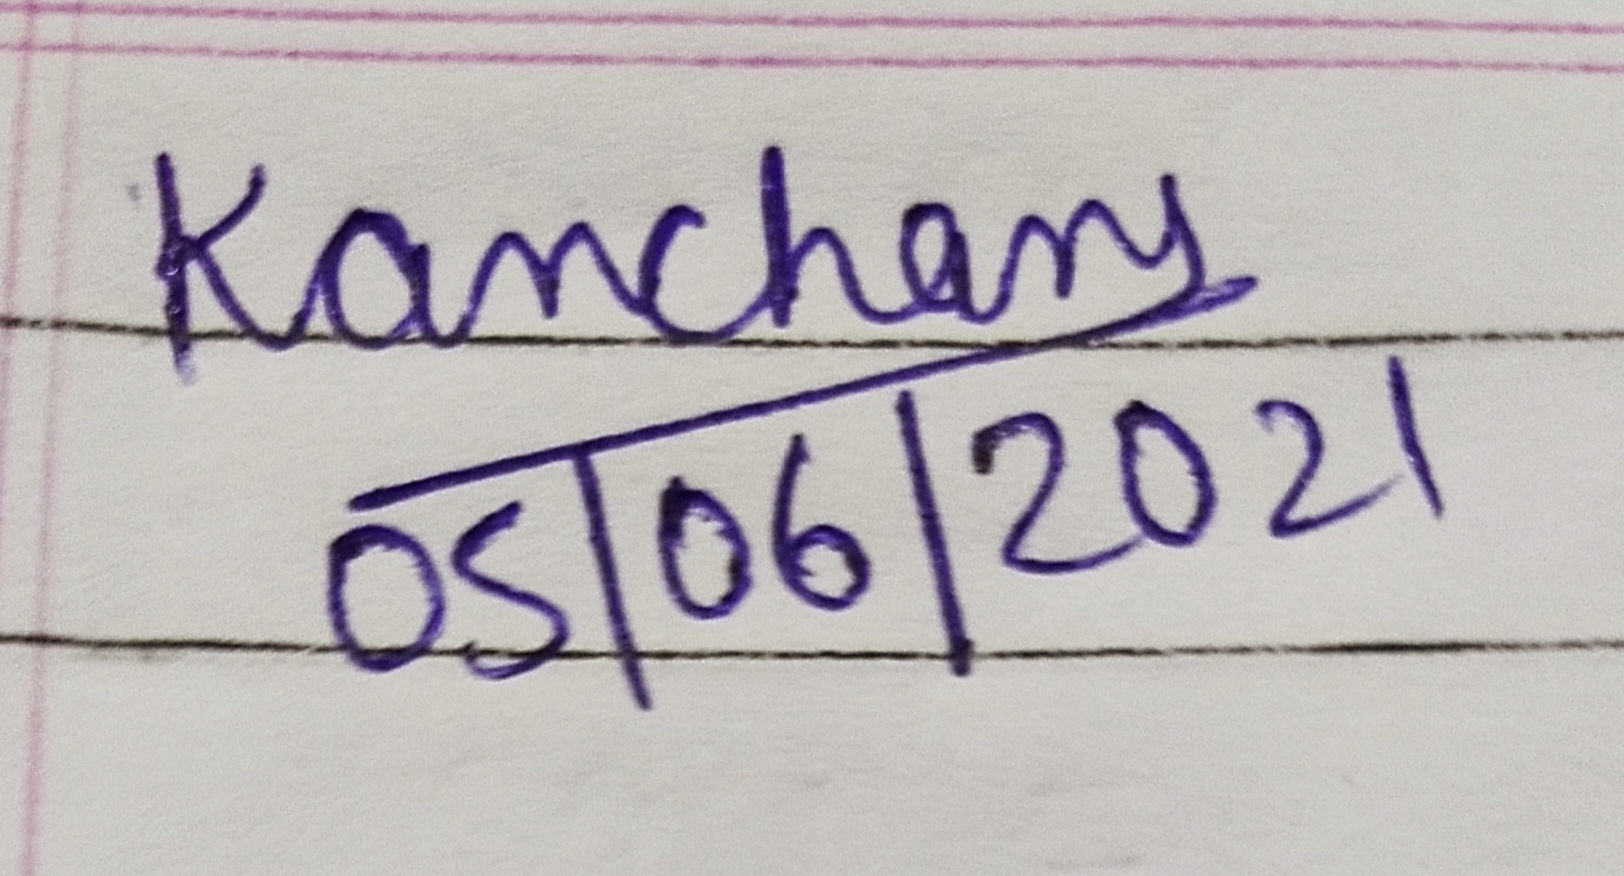 Kanchan
05/06/2021